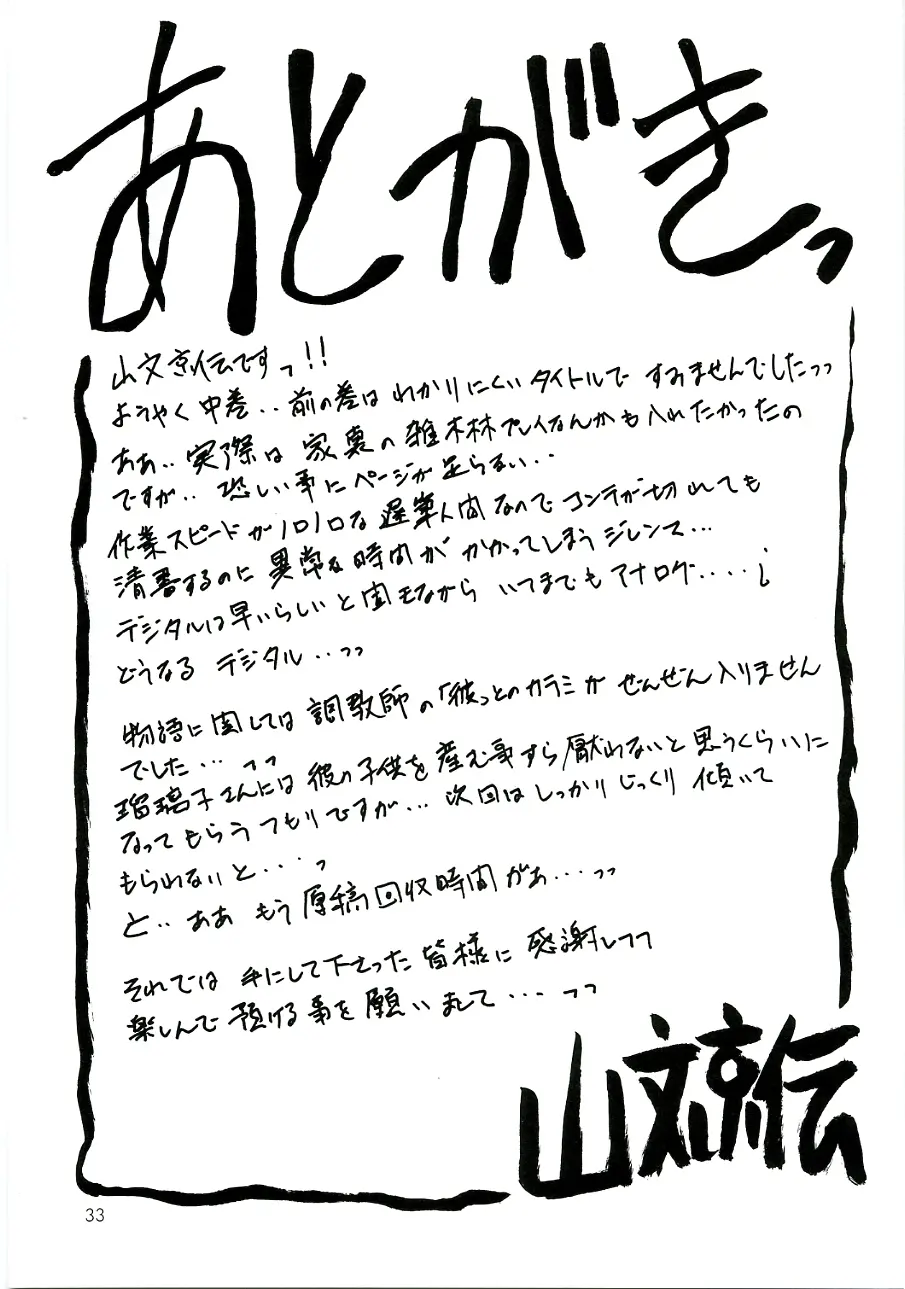 あとがきっ
山文京伝ですっ!!
ようやく中巻‥前の巻はわかりにくいタイトルですみませんでしたっっ
ああ‥実際は家裏の雑木林プレイなんかも入れたかったの
ですが‥恐しい事にページが足らない‥
作業スピードがノロノロな遅筆人間なのでコンテが切れても
清書するのに異常な時間がかかってしまうジレンマ…
デジタルは早いらしいと聞きながらいままでもアナログ‥‥¡
どうなるデジタル‥っっ
物語に関しては調教師の「彼」とのカラミがぜんぜん入りません
でした…っっ
瑠璃子さんには彼の子供を産む事すら厭わないと思うくらいに
なってもらうつもりですが…次回はしっかりじっくり傾いて
もらわないと…っ
と‥ああもう原稿回収時間があ…っっ
それでは手にして下さった皆様に感謝しっっ
楽しんで預ける事を願いまして…っっ
山文京伝
33